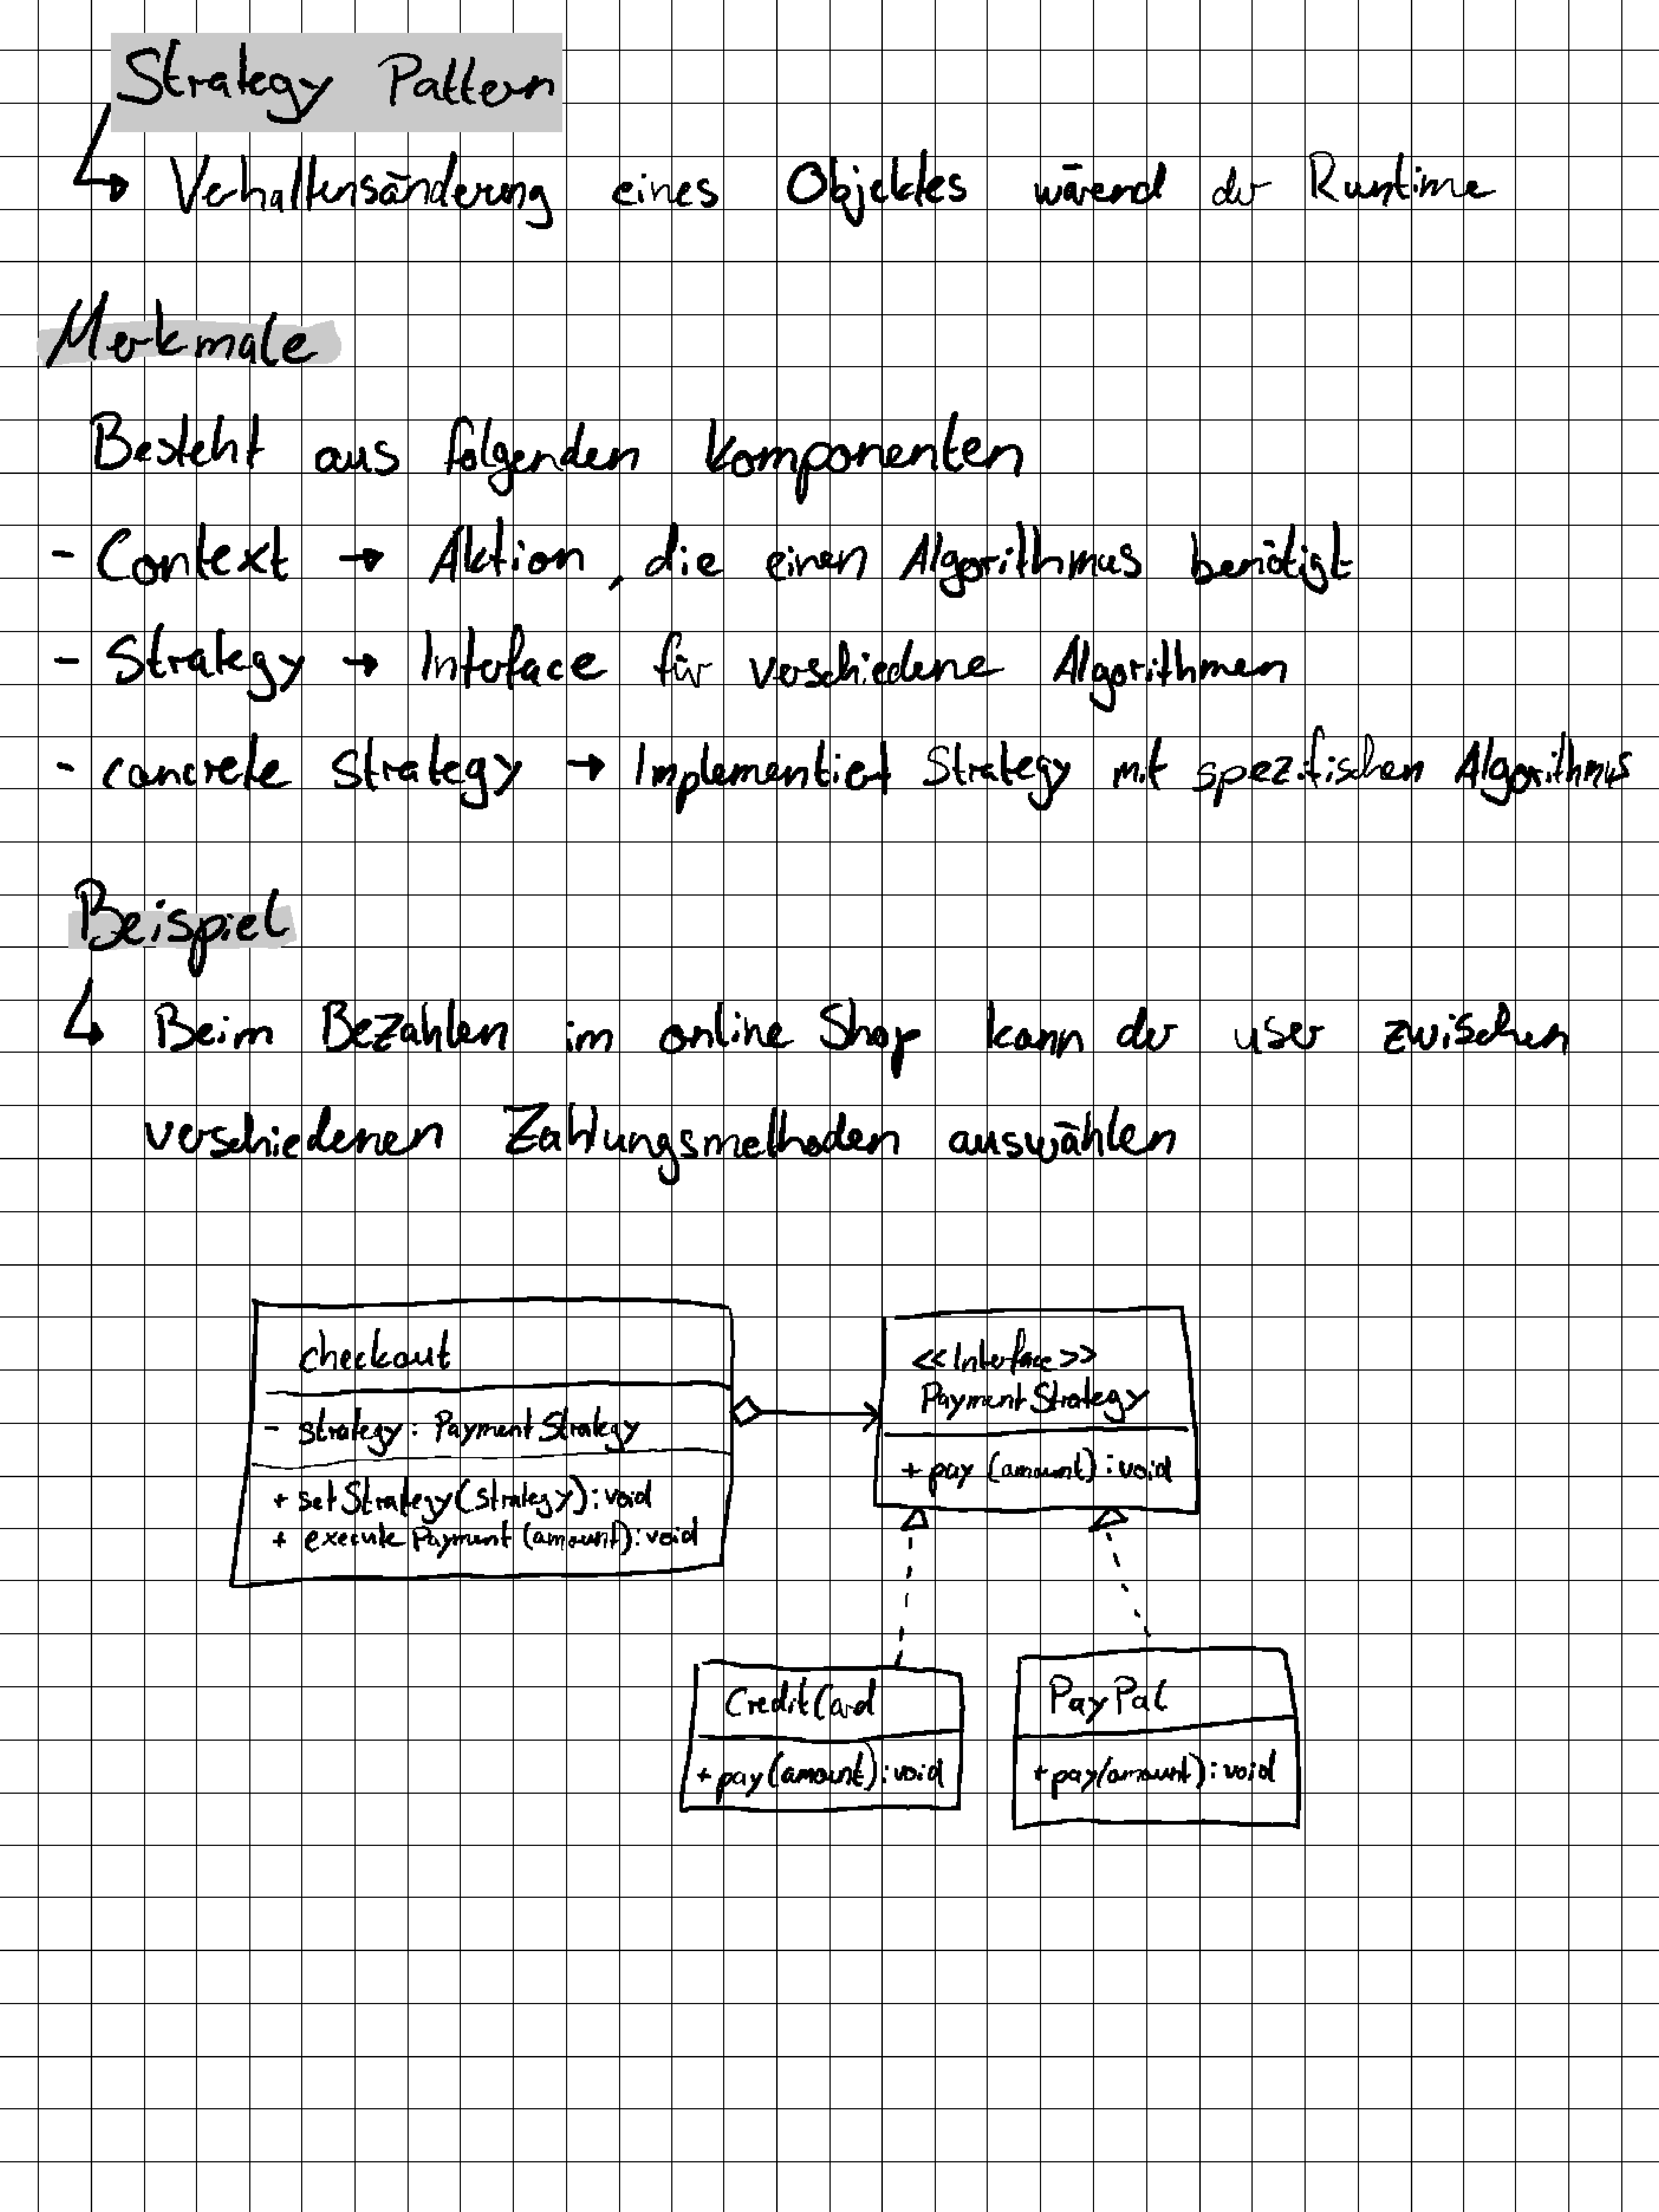 Strategy Pattern
↳ Verhaltensänderung eines Objektes wärend der Runtime
Merkmale
Besteht aus folgenden Komponenten
- Context → Aktion, die einen Algorithmus benötigt
- Strategy → Interface für verschiedene Algorithmen
- concrete Strategy → Implementiert Strategy mit spezifischen Algorithmus
Beispiel
↳ Beim Bezahlen im online Shop kann der user zwischen
verschiedenen Zahlungsmethoden auswählen
checkout
- strategy: PaymentStrategy
+ setStrategy(strategy): void
+ executePayment(amount): void
<<Interface>>
PaymentStrategy
+ pay (amount): void
CreditCard
+ pay(amount): void
PayPal
+ pay(amount): void